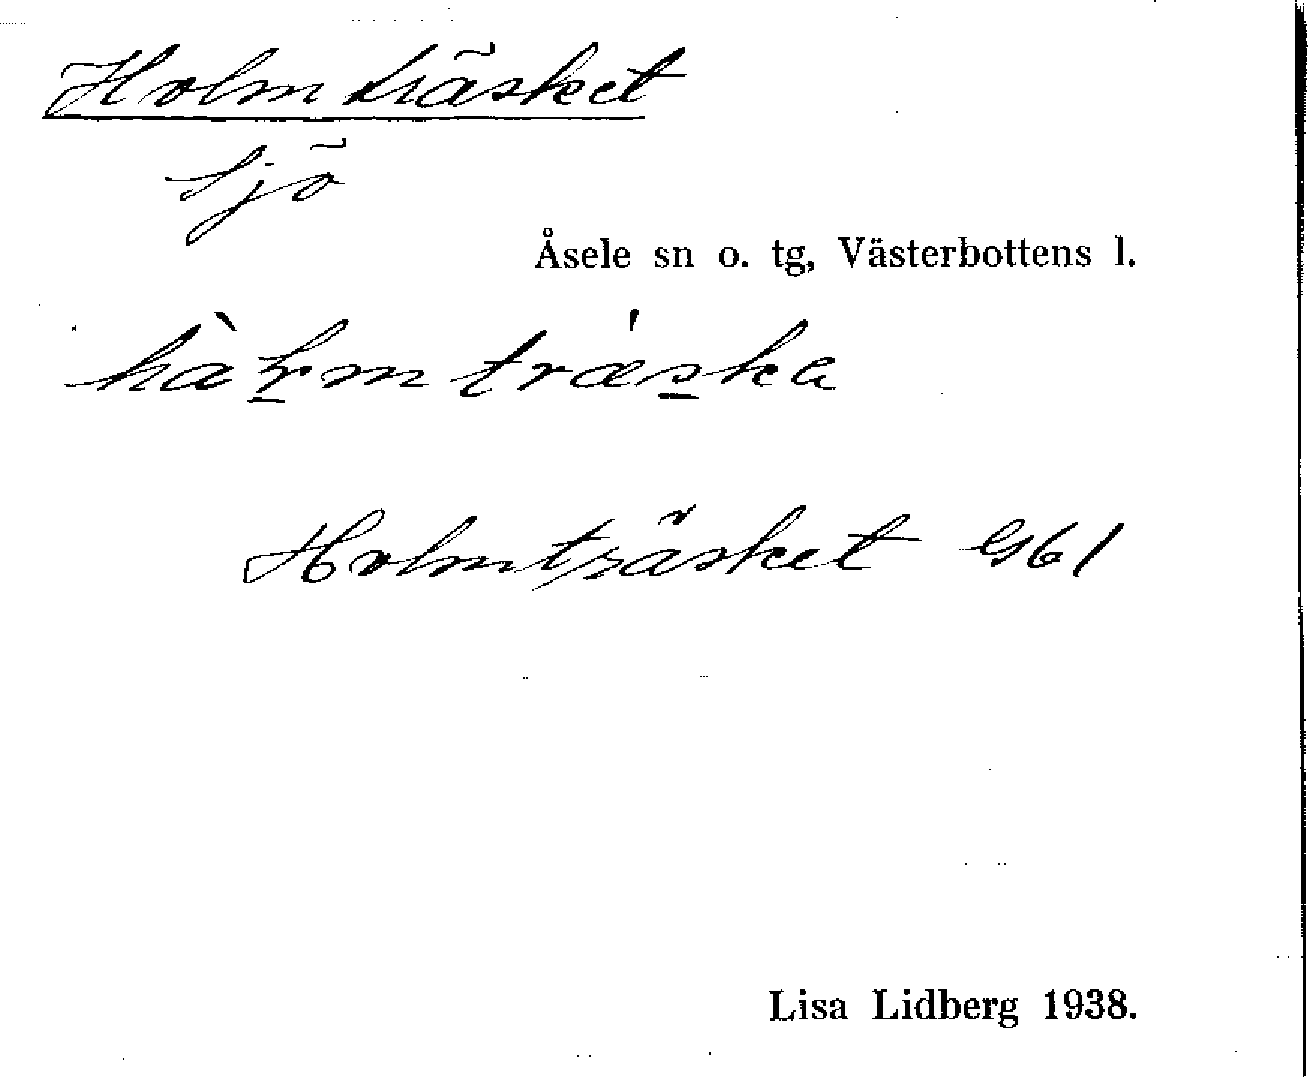 Holmträsket
sjö
Åsele sn o. tg, Västerbottens l.
hàḻmtræ̍s̱ka
Holmträsket G61
Lisa Lidberg 1938.